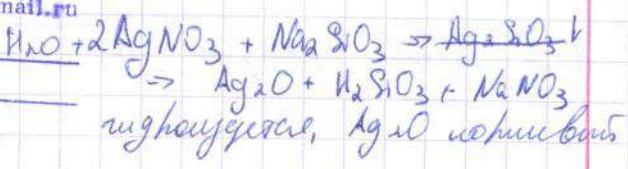 mail.ru
H₂O + 2AgNO₃ + Na₂SiO₃ → ~~Ag₂SiO₃↓~~
→ Ag₂O + H₂SiO₃ + NaNO₃
гидролизуется, Ag₂O коричневый